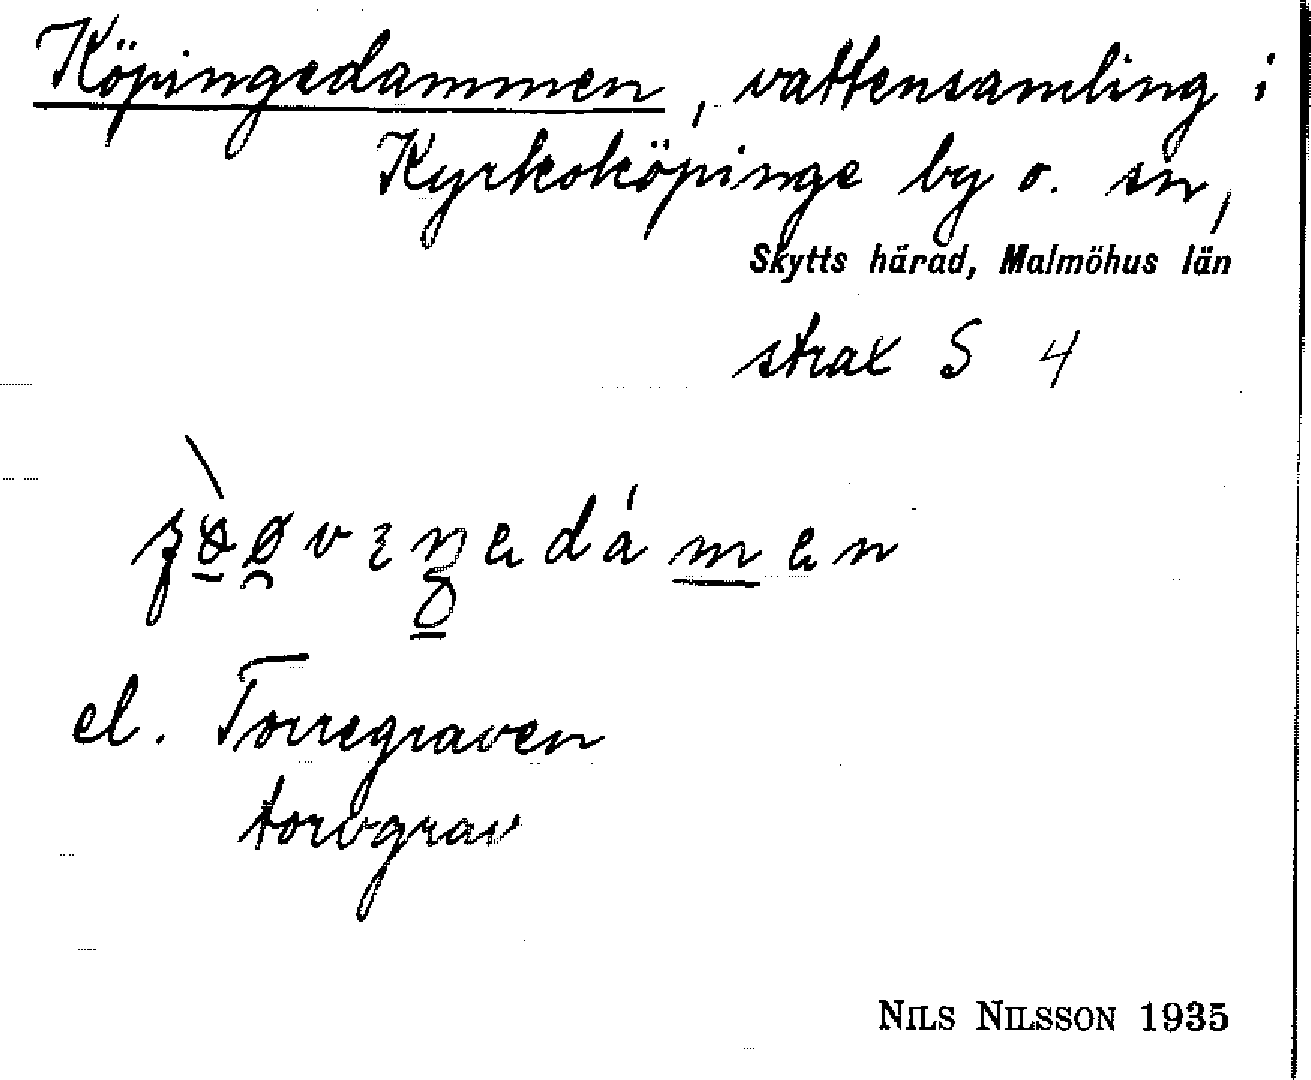 Köpingedammen, vattensamling i
Kyrkoköpinge by o. sn,
Skytts härad, Malmöhus län
strax S 4
el. Torregraven
torvgrav
NILS NILSSON 1935